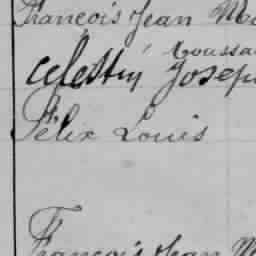 François Jean Ma
Toussa
Célestin Josep
Félix Louis
François Jean M